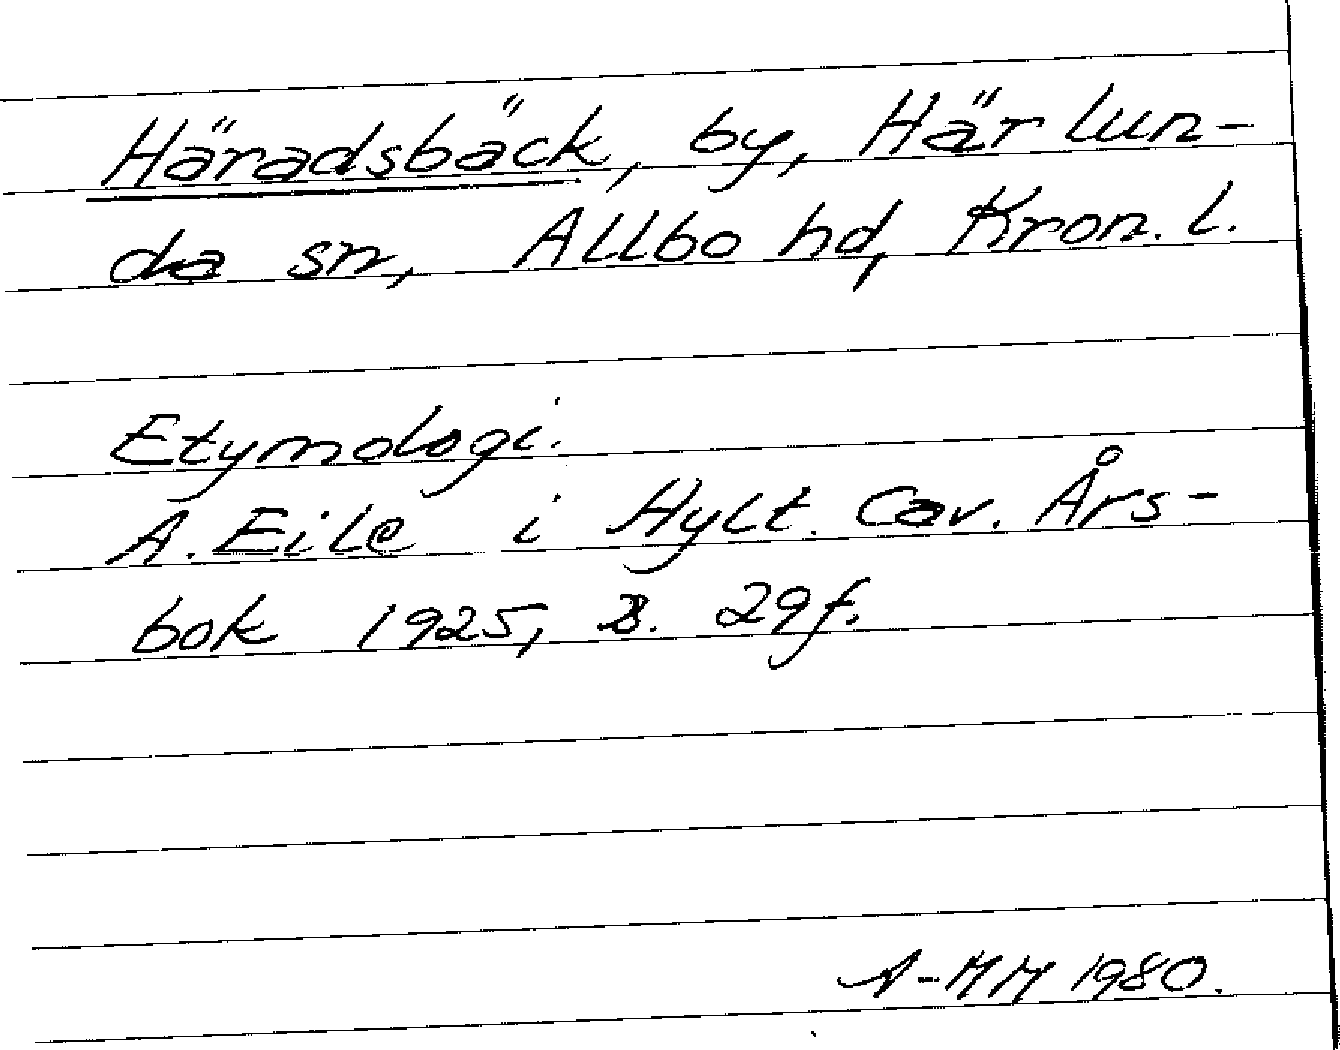 Häradsbäck, by, Härlun-
da sn, Allbo hd, Kron. l.
Etymologi.
A. Eile i Hylt. Cav. Års-
bok 1925, s. 29f.
A-MM 1980.